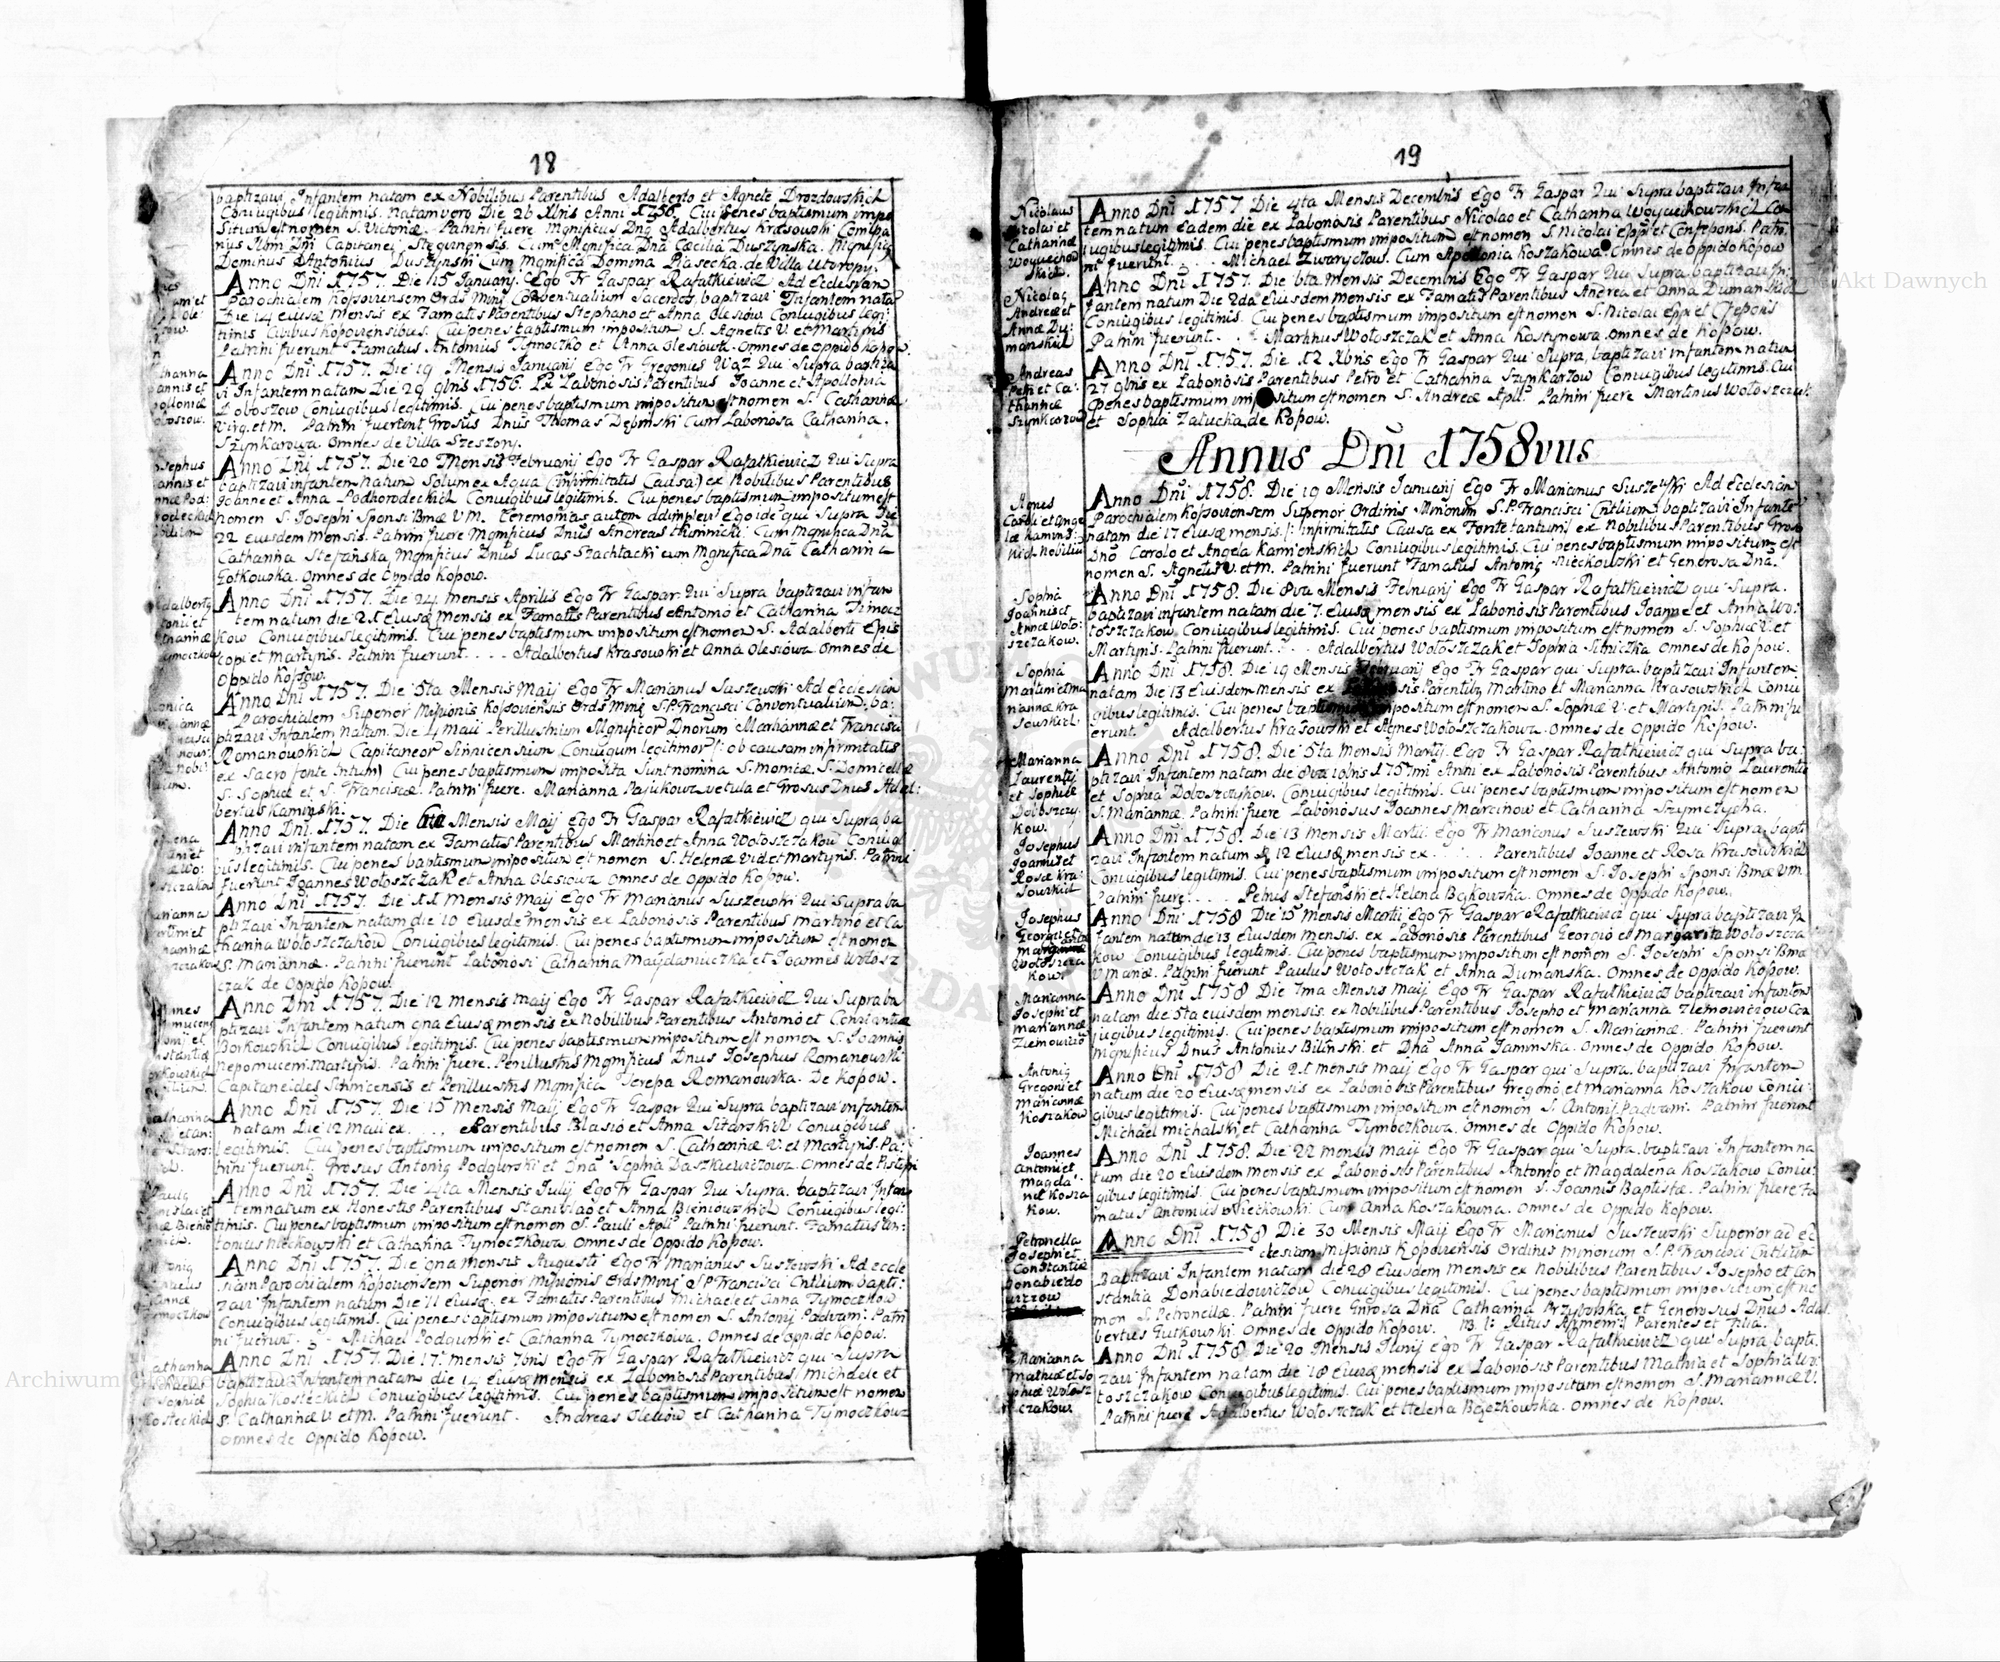 18
baptizavi Infantem natam ex Nobilibus Parentibus Adalberto et Agnete Drozdowskich
Coniugibus legitimis. natam vero Die 26 Xbris Anni 1756. Cui penes baptismum impo
situm est nomen S. Victoriæ. Patrini fuere Mgnificus Dnus Adalbertus Krasowski
Dominus Antonius Duszynski Cum Mgnifica Domina Piasecka de Villa Utoropy.
Anno Dnī 1757. Die 15 Januarij Ego Fr Gaspar Rafałkiewicz Ad Ecclesiam
Parochialem Kossoviensem Ords Minġ Conventualium Sacerdos, baptizavi Infantem nata
Die 14 eiusdē mensis ex Famatis Parentibus Stephano et Anna Olesiow Coniugibus legi
timis Civibus Kossoviensibus. Cui penes baptismum impositum S. Agnetis V. et Martyris
Patrini fuerunt Famatus Antonius Tymoczko et Anna Olesiowa. Omnes de Oppido Kossow.
Anno Dnī 1757. Die 19 Mensis Januarij Ego Fr Gregorius Wąż Qui Supra baptiza
vi Infantem natam Die 29 9bris 1756. Ex Laboriosis Parentibus Joanne et Apollonia
Doboszow Coniugibus legitimis. Cui penes baptismum impositum est nomen S. Catharinæ
Virg. et M. Patrini fuerunt Grosus Dnus Thomas Dębinski Cum Laboriosa Catharina
Szynkarowa. Omnes de Villa Szeszory.
Anno Dnī 1757. Die 20 Mensis Februarij Ego Fr Gaspar Rafałkiewicz Qui Supra
baptizavi infantem natum Solum ex Aqua (infirmitatis Causa) ex Nobilibus Parentibus
Joanne et Anna Podhorodeckich Coniugibus legitimis. Cui penes baptismum impositum est
nomen S. Josephi Sponsi Bmæ V.M. Ceremonias autem Ego idē qui Supra Die
22 eiusdem Mensis. Patrini fuere Mgnificus Dnus Andreas Cum Mgnifica Dna
Catharina Stefańska, Mgnificus Dnus Lucas Szachłacki cum Mgnifica Dna Catharina
Gotkowska. Omnes de Oppido Kossow.
Anno Dnī 1757. Die 24 Mensis Aprilis Ego Fr Gaspar Qui Supra baptizavi infan
tem natum, die 21 Eiusdē mensis ex Famatis Parentibus Antonio et Catharina Tymocz
kow Coniugibus legitimis. Cui penes baptismum impositum est nomen S. Adalberti Epis
copi et Martyris. Patrini fuerunt. . . . Adalbertus Krasowski et Anna Olesiowa Omnes de
Oppido Kossow.
Anno Dnī 1757. Die 5ta Mensis Maij Ego Fr Marianus Suszewski Ad Ecclesiam
Parochialem Superior Missionis Kossoviensis Ords Minġ S.P. Francisci Conventualium, ba:
ptizavi Infantem natam. Die 4 Maij Perillustrium Mgnificor Dnorum Mariannæ et Francisci
Romanowskich Capitaneor Coniugum legitimor /: ob causam infirmitatis
ex Sacro fonte tntum) Cui penes baptismum imposita Sunt nomina S. Monicæ S. Domicellæ
S. Sophiæ et S. Franciscæ. Patrini fuere. Marianna Pajukowa vetula et Grosus Dnus Adal:
bertus Kaminski.
Anno Dnī 1757. Die 6ta Mensis Maij Ego Fr Gaspar Rafałkiewicz qui Supra ba
ptizavi infantem natam ex Famatis Parentibus Martino et Anna Wołoszczakow Coniug
ibus legitimis. Cui penes baptismum impositum est nomen S. Helenæ Vid et Martyris. Patrini
fuerunt Joannes Wołoszczak et Anna Olesiowa Omnes de Oppido Kossow.
Anno Dnī 1757. Die 11 Mensis Maij Ego Fr Marianus Suszewski Qui Supra ba
ptizavi Infantem natam die 10 Eiusdē mensis ex Laboriosis Parentibus Martino et Ca
tharina Wołoszczakow Coniugibus legitimis. Cui penes baptismum impositum est nomen
S. Mariannæ. Patrini fuerunt Laboriosi Catharina Maydaniuczka et Joannes Wołosz
czak de Oppido Kossow.
Anno Dnī 1757. Die 12 mensis Maij Ego Fr Gaspar Rafałkiewicz Qui Supra ba
ptizavi Infantem natum 9na Eiusdē mensis ex Nobilibus Parentibus Antonio et Constantia
Borkowskich Coniugibus legitimis. Cui penes baptismum impositum est nomen S. Joannis
Nepomuceni Martyris. Patrini fuere. Perillustris Mgnificus Dnus Josephus Romanowski
Capitaneides et Perillustris Mgnifica Teressa Romanowska. De Kossow.
Anno Dnī 1757. Die 15 Mensis Maij Ego Fr Gaspar Qui Supra baptizavi infantem
natam Die 12 Maii ex . . . . Parentibus Blasio et Anna Sitarskich Coniugibus
legitimis. Cui penes baptismum impositum est nomen S. Catharinæ V. et Martyris. Pa:
trini fuerunt, Grosus Antonius Podgurski et Dna Sophia Daszkiewiczowa. Omnes de Pistyn
Anno Dnī 1757. Die 4ta Mensis Julij Ego Fr Gaspar Qui Supra. baptizavi Infan
tem natum ex Honestis Parentibus Stanislao et Anna Bieniowskich Coniugibus legi
timis. Cui penes baptismum impositum est nomen S. Pauli Apli Patrini fuerunt. Famatus An:
tonius Nieckowski et Catharina Tymoczkowa. Omnes de Oppido Kossow.
Anno Dnī 1757. Die 9na Mensis Augusti Ego Fr Marianus Suszewski Ad eccle
siam Parochialem Kossoviensem Superior Missionis Ords Minġ S.P. Francisci Cntlium bapti:
zavi Infantem natum Die 11 Eiusdē. ex Famatis Parentibus Michaele et Anna Tymoczkow
Coniugibus legitimis. Cui penes baptismum impositum est nomen S. Antonij Padvani. Patri
ni fuerunt. . . Michael Podgurski et Catharina Tymoczkowa. Omnes de Oppido Kossow.
Anno Dnī 1757. Die 17. mensis 7bris Ego Fr Gaspar Rafałkiewicz qui Supra
baptizavi Infantem natam die 14 Eiusdē mensis ex Laboriosis Parentibus Michaele et
Sophia Kosteckich Coniugibus legitimis. Cui penes baptismum impositum est nomen
S. Catharinæ V. et M. Patrini fuerunt. Andreas Olexow et Catharina Tymoczkowa
Omnes de Oppido Kossow.
19
Nicolaus
Nicolai et
Catharinæ
Anno Dnī 1757. Die 4ta Mensis Decembris Ego Fr Gaspar Qui Supra baptizavi Infan
tem natum Eadem die ex Laboriosis Parentibus Nicolao et Catharina Woyciechowskich Con
iugibus legitimis. Cui penes baptismum impositum est nomen S. Nicolai Eppi et Confessoris. Patri
ni fuerunt. . . . . Michael Zwaryczow. Cum Apollonia Koszakowa Omnes de Oppido Kossow
Nicolaus
Andreæ et
Annæ Du:
manskich
Anno Dnī 1757. Die 6ta Mensis Decembris Ego Fr Gaspar Qui Supra baptizavi In:
fantem natum Die 2da Eiusdem mensis ex Famatis Parentibus Andrea et Anna Dumanskich
Coniugibus legitimis. Cui penes baptismum impositum est nomen S. Nicolai Eppi et Cfessoris
Patrini fuerunt. . . . Marthus Wołoszczak et Anna Kostynowa Omnes de Kossow.
Andreas
Petri et Ca:
tharinæ
Szynkarzow
Anno Dnī 1757. Die 12 Xbris Ego Fr Gaspar Qui Supra, baptizavi infantem natum
27 9bris ex Laboriosis Parentibus Petro et Catharina Szynkarzow Coniugibus legitimis. Cui
penes baptismum impositum est nomen S. Andreæ Apli. Patrini fuere Martinus Wołoszczak
et Sophia Załucka de Kossow.
Annus Dnī 1758vus
Agnes
Caroli et Ange
læ Kamins:
kich Nobilium
Anno Dnī 1758. Die 19 Mensis Januarij Ego Fr Marianus Suszewski Ad Ecclesiam
Parochialem Kossoviensem Superior Ordinis Minorum S.P. Francisci Cntlium baptizavi Infante
natam die 17 Eiusdē mensis. /: infirmitatis Causa ex Fonte tantum/ ex Nobilibus Parentibus Groso
Dno Carolo et Angela Kamienskich Coniugibus legitimis. Cui penes baptismum impositum est
nomen S. Agnetis V. et M. Patrini fuerunt Famatus Antonius Nieckowski et Generosa Dna.
Sophia
Joannis et
Annæ Woło:
szczakow.
Anno Dnī 1758. Die 8va Mensis Februarij Ego Fr Gaspar Rafałkiewicz qui Supra.
baptizavi infantem natam die 7. Eiusdē mensis ex Laboriosis Parentibus Joanne et Anna Wo:
łoszczakow, Coniugibus legitimis. Cui penes baptismum impositum est nomen S. Sophiæ V. et
Martyris. Patrini fuerunt. . . . Adalbertus Wołoszczak et Sophia Sitniczka Omnes de Kossow.
Sophia
Martini et Ma
riannæ Kra
sowskich.
Anno Dnī 1758. Die 19 Mensis Februarij Ego Fr Gaspar qui Supra. baptizavi Infantem
natam Die 13 Eiusdem mensis ex Parentibus Martino et Marianna Krasowskich Coniu
gibus legitimis. Cui penes baptismum impositum est nomen S. Sophiæ V. et Martyris. Patrini fu
erunt. Adalbertus Krasowski et Agnes Wołoszczakowa. Omnes de Oppido Kossow.
Marianna
Laurentij
et Sophiæ
Dobószczy
kow.
Anno Dnī 1758. Die 5ta Mensis Martij. Ego Fr Gaspar Rafałkiewicz qui Supra ba:
ptizavi Infantem natam die 8va Xbris 1757mi Anni ex Laboriosis Parentibus Antonio Laurentio
et Sophia Doboszczykow. Coniugibus legitimis. Cui penes baptismum impositum est nomen
S. Mariannæ. Patrini fuere Laboriosus Joannes Marcinow et Catharina Szymczycha.
Josephus
Joannis et
Rosæ Kra
sowskich
Anno Dnī 1758. Die 13 Mensis Martii Ego Fr Marianus Suszewski Qui Supra, bapti
zavi Infantem natum 12 Eiusdē mensis ex . . . . Parentibus Joanne et Rosa Krasowskich
Coniugibus legitimis. Cui penes baptismum impositum est nomen S. Josephi Sponsi Bmæ V.M.
Patrini fuere. . . . Petrus Stefański et Helena Bąkowska. Omnes de Oppido Kossow.
Josephus
Georgii et
Wołoszcza
kow.
Anno Dnī 1758 Die 15 Mensis Martii Ego Fr Gaspar Rafałkiewicz qui Supra baptizavi In
fantem natum die 13 Eiusdem mensis. ex Laboriosis Parentibus Georgio et Margarita Wołoszcza
kow Coniugibus legitimis. Cui penes baptismum impositum est nomen S. Josephi Sponsi Bmæ
V Mariæ. Patrini fuerunt Paulus Wołoszczak et Anna Dumanska. Omnes de Oppido Kossow.
Marianna
Josephi et
Mariannæ
Ziemowiczo
Anno Dnī 1758 Die 7ma Mensis Maij Ego Fr Gaspar Rafałkiewicz baptizavi infantem
natam die 5ta eiusdem mensis. ex Nobilibus Parentibus Josepho et Marianna Ziemowiczow Con
jugibus legitimis. Cui penes baptismum impositum est nomen S. Mariannæ. Patrini fuerunt
Mgnificus Dnus Antonius Bilinski. et Dna Anna Jaminska. Omnes de Oppido Kossow.
Antonius
Gregorii et
Mariannæ
Koszakow
Anno Dnī 1758 Die 21 mensis Maij Ego Fr Gaspar qui Supra. baptizavi Infantem
natum die 20 Eiusdē mensis ex Laboriosis Parentibus Gregorio et Marianna Koszakow Coniu:
gibus legitimis. Cui penes baptismum impositum est nomen S. Antonij Padvani. Patrini fuerunt
Michael Michalski, et Catharina Tymoczkowa. Omnes de Oppido Kossow.
Joannes
Antonii et
Magda:
næ Kosza
kow.
Anno Dnī 1758. Die 22 mensis Maij Ego Fr Gaspar qui Supra. baptizavi Infantem na
tum die 20 Eiusdem mensis ex Laboriosis Parentibus Antonio et Magdalena Koszakow Coniu:
gibus legitimis. Cui penes baptismum impositum est nomen S. Joannis Baptistæ. Patrini fuere Fa
matus Antonius Nieckowski. Cum Anna Koszakowna. Omnes de Oppido Kossow.
Petronella
Josephi et
Constantiæ
Donabiedo
wiczow
Anno Dnī 1758 Die 30 Mensis Maij Ego Fr Marianus Suszewski Superior ad Ec
clesiam Missionis Kossoviensis Ordinis Minorum S.P. Francisci Cntlium
Baptizavi Infantem natam die 28 Eiusdem mensis ex Nobilibus Parentibus Josepho et Con
stantia Donabiedowiczow Coniugibus legitimis. Cui penes baptismum impositum est no
men S. Petronellæ. Patrini fuere Gnrosa Dna Catharina Przybowska et Generosus Dnus Adal
bertus Gutkowski. Omnes de Oppido Kossow. NB. /: Ritus Armeni Parentes et Filia.
Marianna
Mathiæ et So
phiæ Wołosz
czakow.
Anno Dnī 1758 Die 20 Mensis Junij Ego Fr Gaspar Rafałkiewicz qui Supra bapti:
zavi Infantem natam die 18 Eiusdē mensis ex Laboriosis Parentibus Mathia et Sophia Wo:
łoszczakow Coniugibus legitimis. Cui penes baptismum impositum est nomen S. Mariannæ V.
Patrini fuere Adalbertus Wołoszczak et Helena Bączkowska. Omnes de Oppido Kossow.